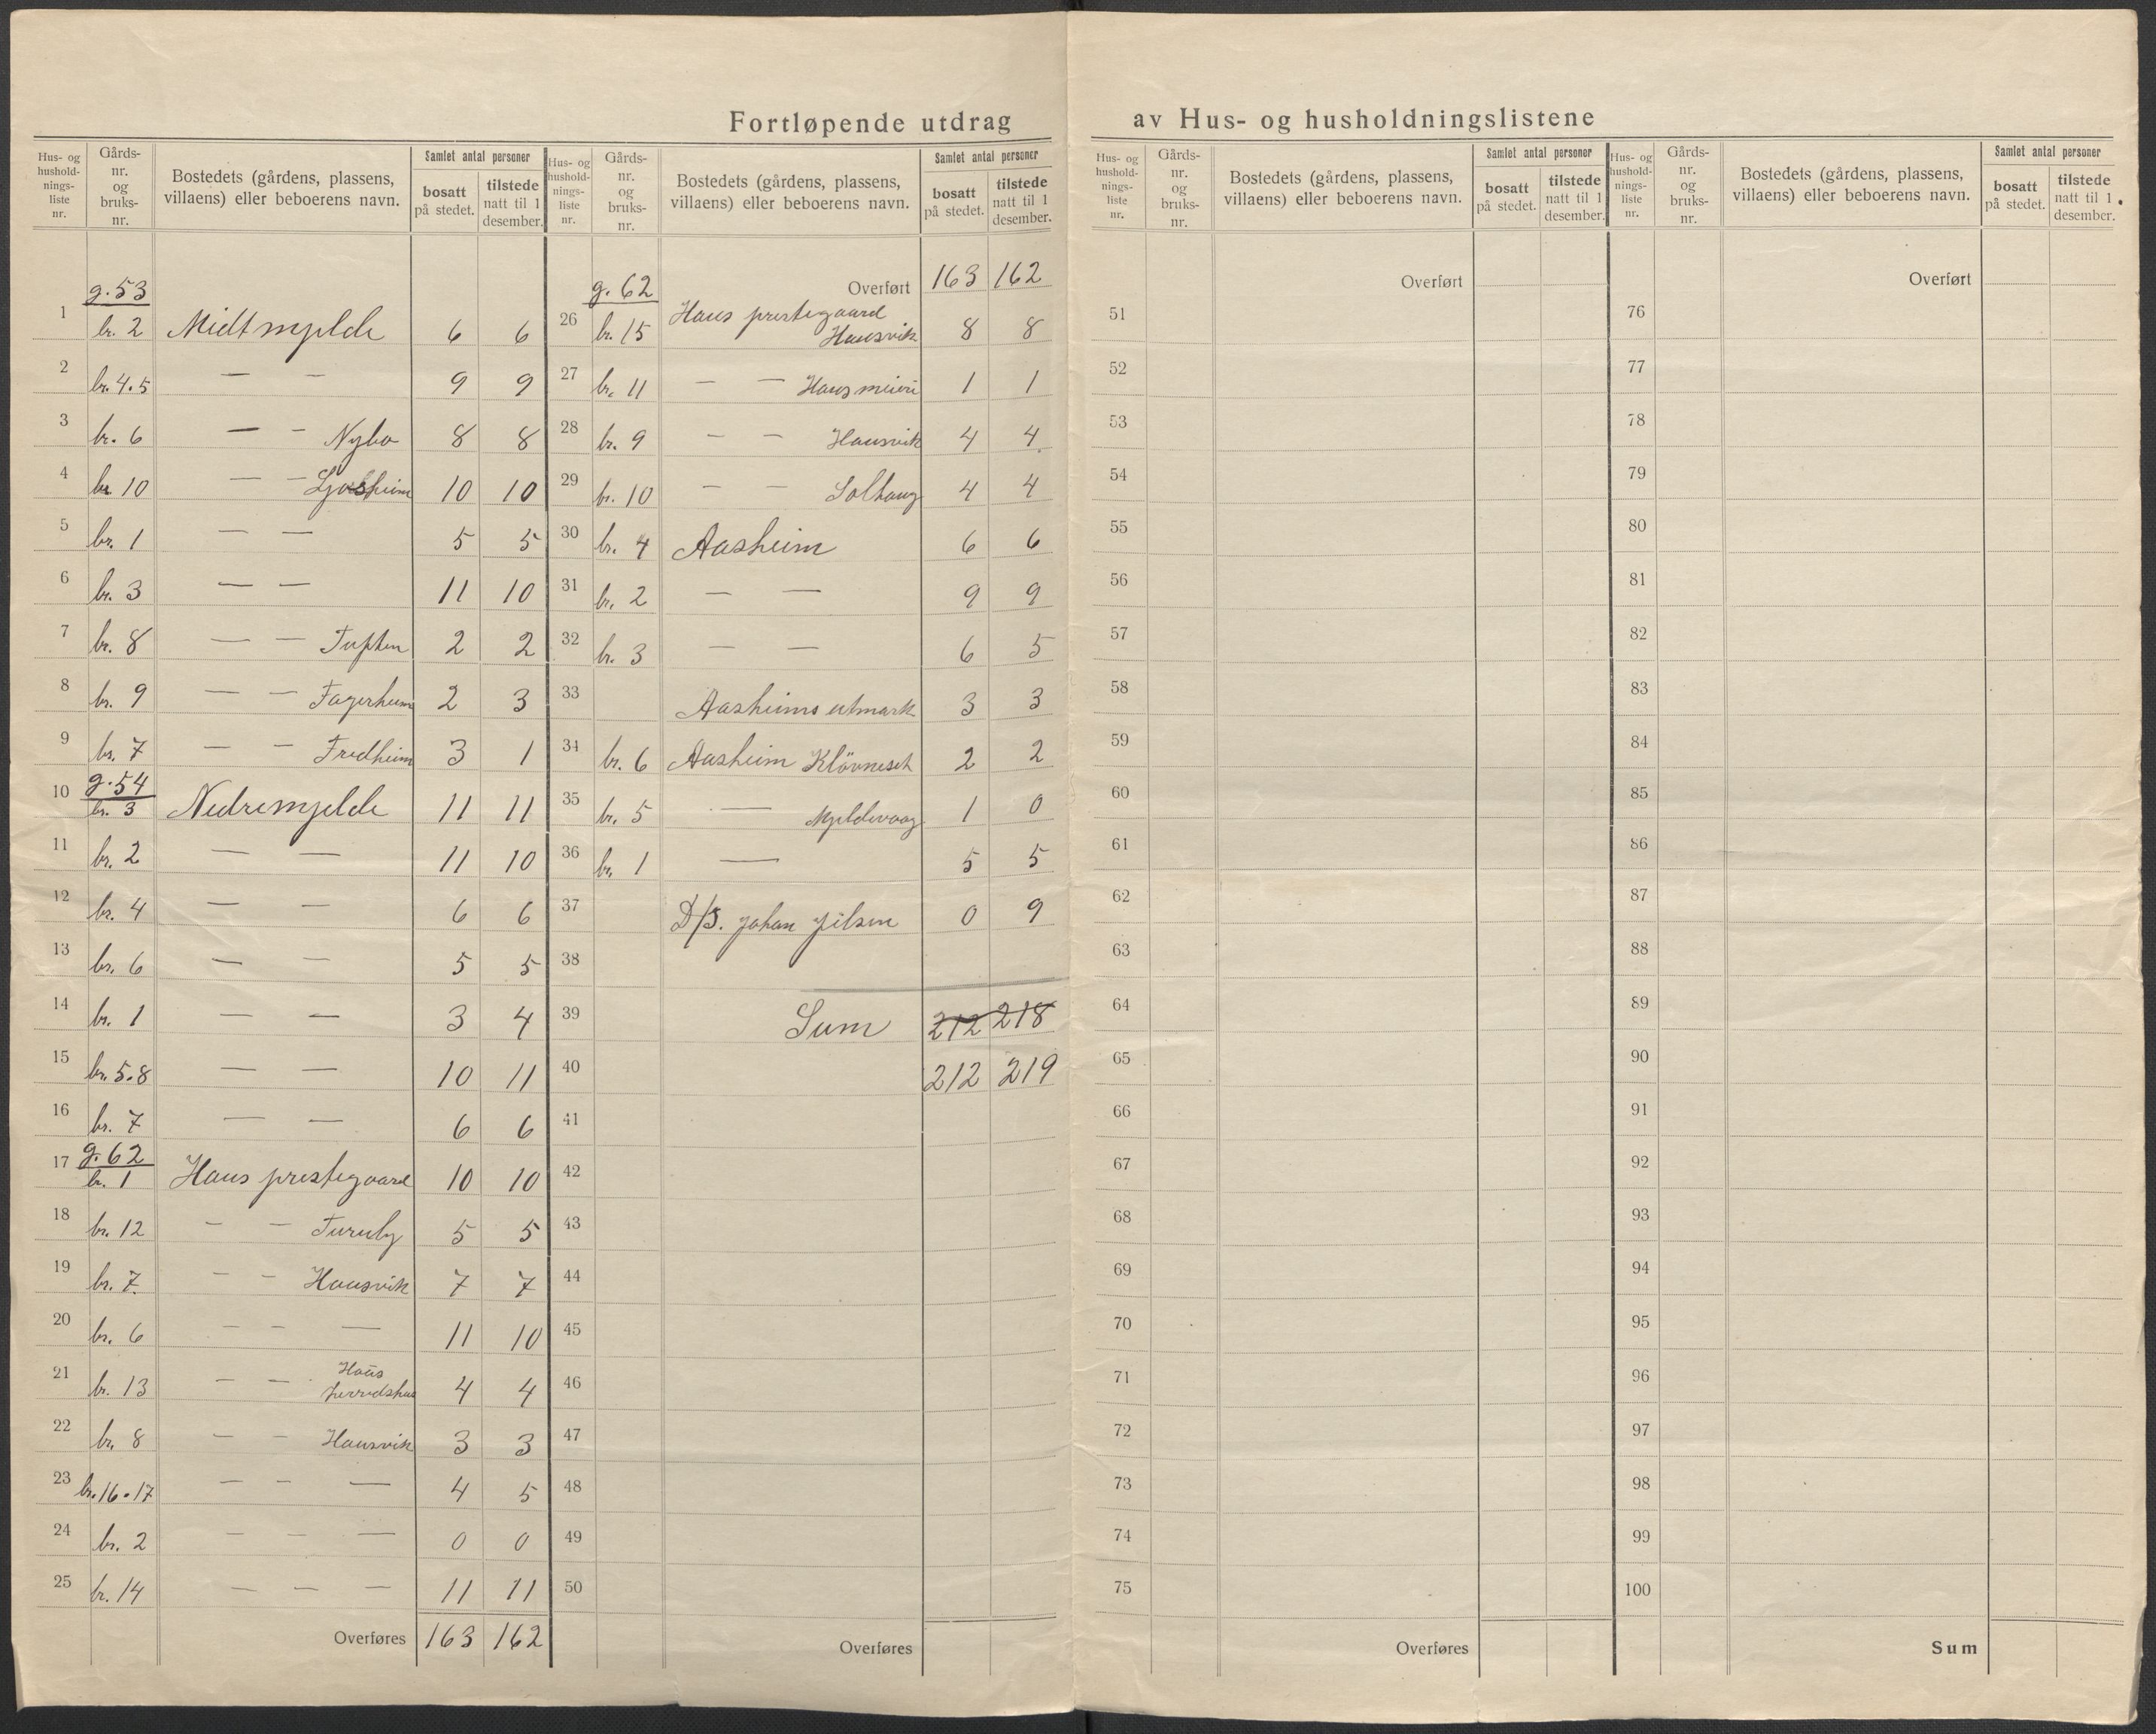 Fortløpende utdrag av Hus- og husholdningslistene
Hus- og husholdnings-liste nr. | Gårds-nr. og bruks-nr. | Bostedets (gårdens, plassens, villaens) eller beboerens navn. | Samlet antal personer bosatt på stedet. | tilstede natt til 1 desember.
1 g. 53 br. 2 Midtmjelde 6 6
2 br. 4.5 — — 9 9
3 br. 6 — — Nybo 8 8
4 br 10 — — Ljosheim 10 10
5 br. 1 — — 5 5
6 br. 3 — — 11 10
7 br. 8 — — Tuften 2 2
8 br. 9 — — Fagerheim 2 3
9 br. 7 — — Fredheim 3 1
10 g. 54 br. 3 Nedremjelde 11 11
11 br. 2 — — 11 10
12 br. 4 — — 6 6
13 br. 6 — — 5 5
14 br. 1 — — 3 4
15 br. 5.8 — — 10 11
16 br. 7 — — 6 6
17 g. 62 br. 1 Haus prestegaard 10 10
18 br. 12 — — Furuly 5 5
19 br. 7. — — Hausvik 7 7
20 br. 6 — — — 11 10
21 br. 13 — — Haus herredshus 4 4
22 br. 8 — — Hausvik 3 3
23 br. 16.17 — — — 4 5
24 br. 2 — — — 0 0
25 br. 14 — — — 11 11
Overføres 163 162
Hus- og husholdnings-liste nr. | Gårds-nr. og bruks-nr. | Bostedets (gårdens, plassens, villaens) eller beboerens navn. | Samlet antal personer bosatt på stedet. | tilstede natt til 1 desember.
Overført 163 162
26 g. 62 br. 15 Haus prestegaard Hausvik 8 8
27 br. 11 — — Haus meieri 1 1
28 br. 9 — — Hausvik 4 4
29 br. 10 — — Solhaug 4 4
30 br. 4 Aasheim 6 6
31 br. 2 — — 9 9
32 br. 3 — — 6 5
33 Aasheims utmark 3 3
34 br. 6 Aasheim Klövneset 2 2
35 br. 5 — Mjeldevaag 1 0
36 br. 1 — 5 5
37 D/S. Johan Jilsen 0 9
38
39 Sum 212 218
40 212 219
41
42
43
44
45
46
47
48
49
50
Overføres
Hus- og husholdnings-liste nr. | Gårds-nr. og bruks-nr. | Bostedets (gårdens, plassens, villaens) eller beboerens navn. | Samlet antal personer bosatt på stedet. | tilstede natt til 1 desember.
Overført
51
52
53
54
55
56
57
58
59
60
61
62
63
64
65
66
67
68
69
70
71
72
73
74
75
Overføres
Hus- og husholdnings-liste nr. | Gårds-nr. og bruks-nr. | Bostedets (gårdens, plassens, villaens) eller beboerens navn. | Samlet antal personer bosatt på stedet. | tilstede natt til 1 desember.
Overført
76
77
78
79
80
81
82
83
84
85
86
87
88
89
90
91
92
93
94
95
96
97
98
99
100
Sum